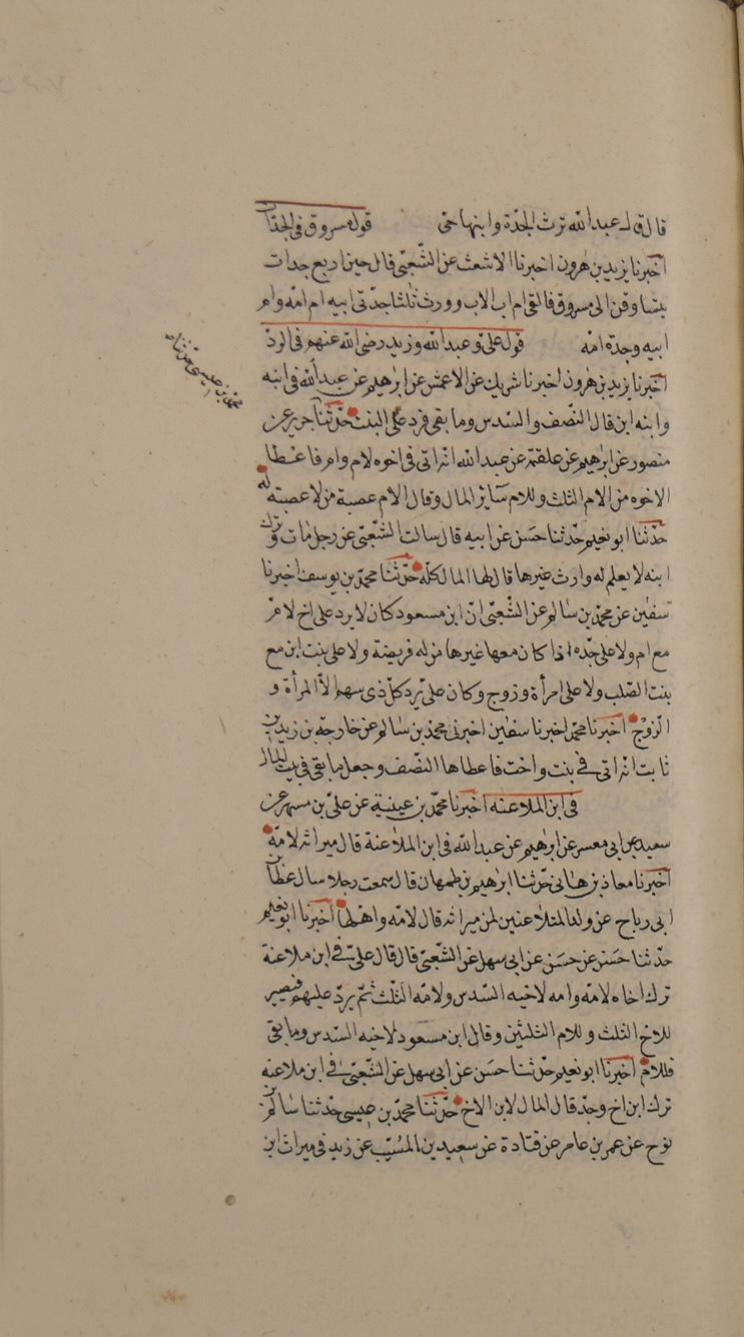 قال قال عبد الله ترث الجدة وابنها حى قول مسروق فى الجدات
اخبرنا يزيد بن هرون اخبرنا الاشعث عن الشعبى قال جئن اربع جدات
يتساوقن الى مسروق فالقى ام اب الاب وورث ثلثا جدتى ابيه ام امه وام
ابيه وجدة امه قول على وعبد الله وزيد رضى الله عنهم فى الرد
اخبرنا يزيد بن هرون اخبرنا شريك عن الاعمش عن ابرهيم عن عبد الله فى ابنه
وابنه ابن قال النصف والسدس وما بقى فرد على البنت حدثنا جرير عن
منصور عن ابرهيم عن علقمة عن عبد الله انه اتى فى اخوه لام وام فاعطا
الاخوه من الام الثلث وللام سائر المال وقال الام عصبة من لا عصبة له
حدثنا ابو نعيم حدثنا حسن عن ابيه قال سالت الشعبى عن رجل مات وترك
ابنه لا يعلم له وارث غيرها قال لها المال كله حدثنا محمد بن يوسف اخبرنا
سفين عن محمد بن سالم عن الشعبى ان ابن مسعود كان لا يرد على اخ لام
مع ام ولا على جده اذا كان معها غيرها من له فريضة ولا على بنت ابن مع
بنت الصلب ولا على امرأة وزوج وكان على يرد كل ذى سهم الا المرأة و
الزوج اخبرنا محمد اخبرنا سفين اخبرنى محمد بن سالم عن خارجة بن زيد بن
ثابت انه اتى فى بنت واخت فاعطاها النصف وجعل ما بقى فى بيت المال
فى ابن الملاعنه اخبرنا محمد بن عيينة عن على بن مسهر عن
سعيد عن ابى معسر عن ابرهيم عن عبد الله فى ابن الملاعنة قال ميراثه لامه
اخبرنا معاذ بن هانى حدثنا ابرهيم بن طهمان قال سمعت رجلا سال عطا بن
ابى رباح عن ولد المتلاعنين لمن ميراثه قال لامه واهلها اخبرنا ابو نعيم
حدثنا حسن عن حسن عن ابى سهل عن الشعبى قال قال على فى ابن ملاعنة
ترك اخاه لامه وامه لاخيه السدس ولامه الثلث ثم يرد عليهم فيصير
للاخ الثلث وللام الثلثين وقال ابن مسعود لاخيه السدس وما بقى
فللام اخبرنا ابو نعيم حدثنا حسن عن ابى سهل عن الشعبى فى ابن ملاعنه
ترك ابن اخ وجد قال المال لابن الاخ حدثنا محمد بن عيسى حدثنا سالم بن
نوح عن عمر بن عامر عن قتادة عن سعيد بن المسيب عن زيد فى ميراث ابن
محمد بن عيسى حدثنا